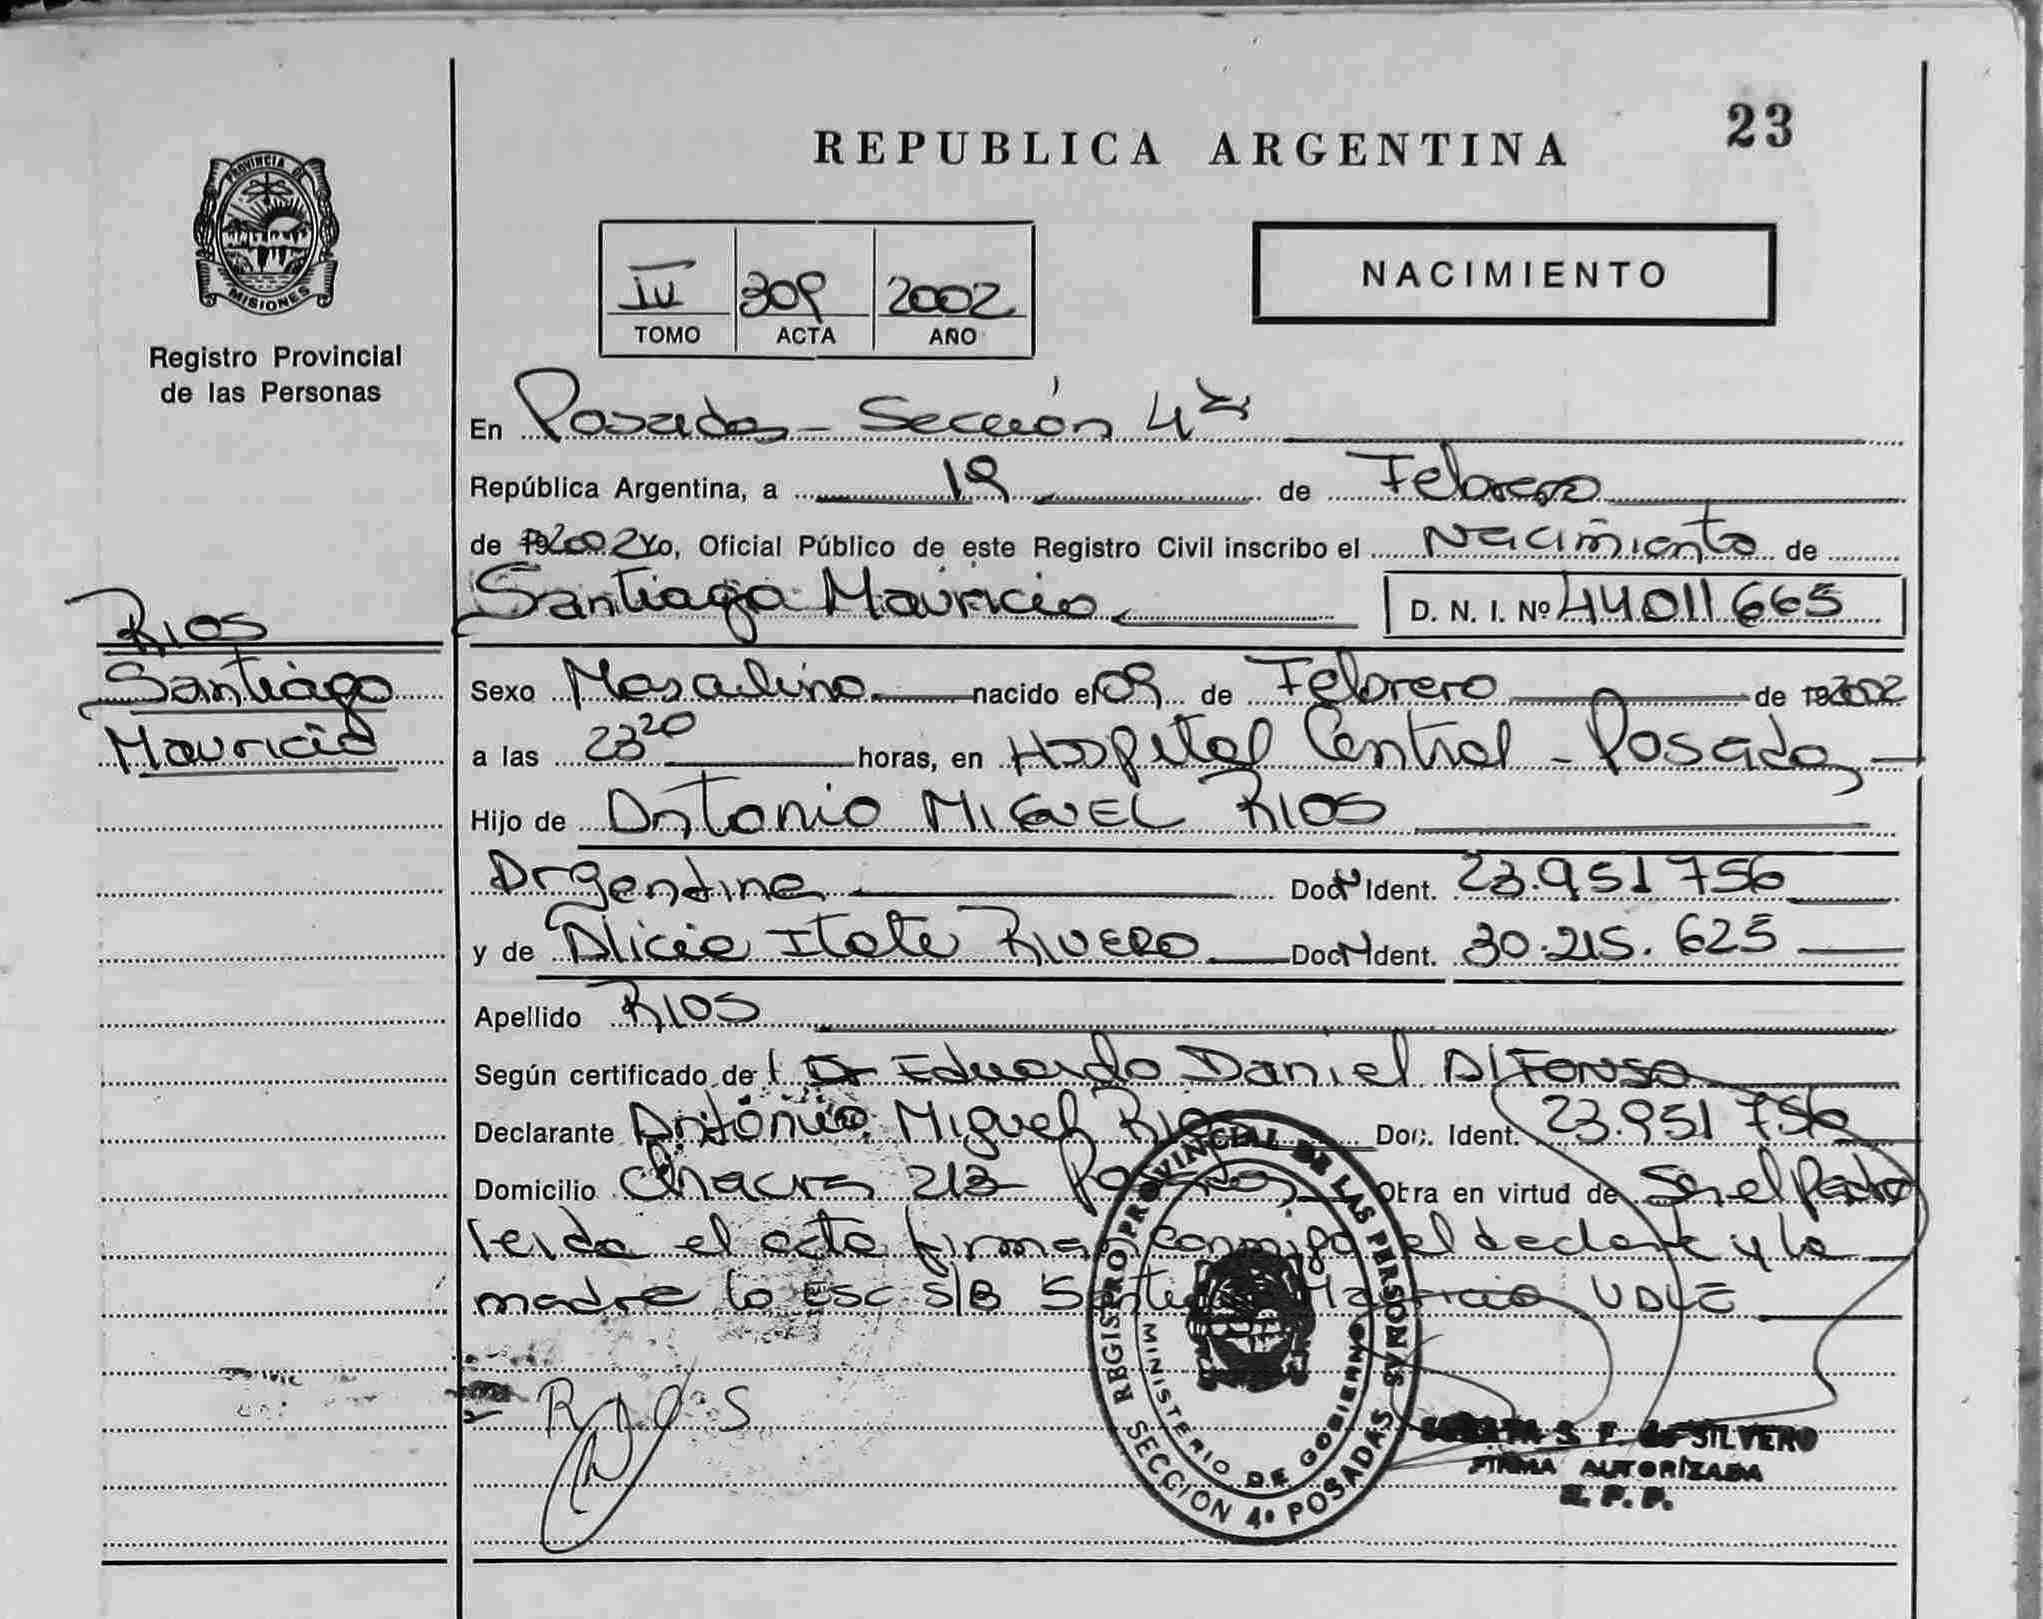 23
REPUBLICA ARGENTINA
PROVINCIA DE
MISIONES
Registro Provincial
de las Personas
NACIMIENTO
IV 309 2002
TOMO ACTA AÑO
En Posadas - Sección 4ta
República Argentina, a 19 de Febrero
de 192002 Yo, Oficial Público de este Registro Civil inscribo el Nacimiento de
Santiago Mauricio D. N. I. Nº 44011665
RIOS
Santiago
Mauricio
Sexo Masculino nacido el 09 de Febrero de 192002
a las 23 20 horas, en Hospital Central - Posadas
Hijo de Antonio MIGUEL RIOS
Argentina Doc N Ident. 23.951756
y de Alicia Itatí RIVERO Doc N Ident. 30.215.625
Apellido RIOS
Según certificado de l Dr Eduardo Daniel Alfonso
Declarante Antonio Miguel Rios Doc. Ident. 23.951756
Domicilio Chacra 213 Posadas Obra en virtud de Ser el Padre
leida el acta firman conmigo el declarante y la
madre lo Esc S/B Santiago Mauricio VALE
RIOS
REGISTRO PROVINCIAL DE LAS PERSONAS
MINISTERIO DE GOBIERNO
SECCION 4ª POSADAS
S. F. de SILVERO
FIRMA AUTORIZADA
R. P. P.